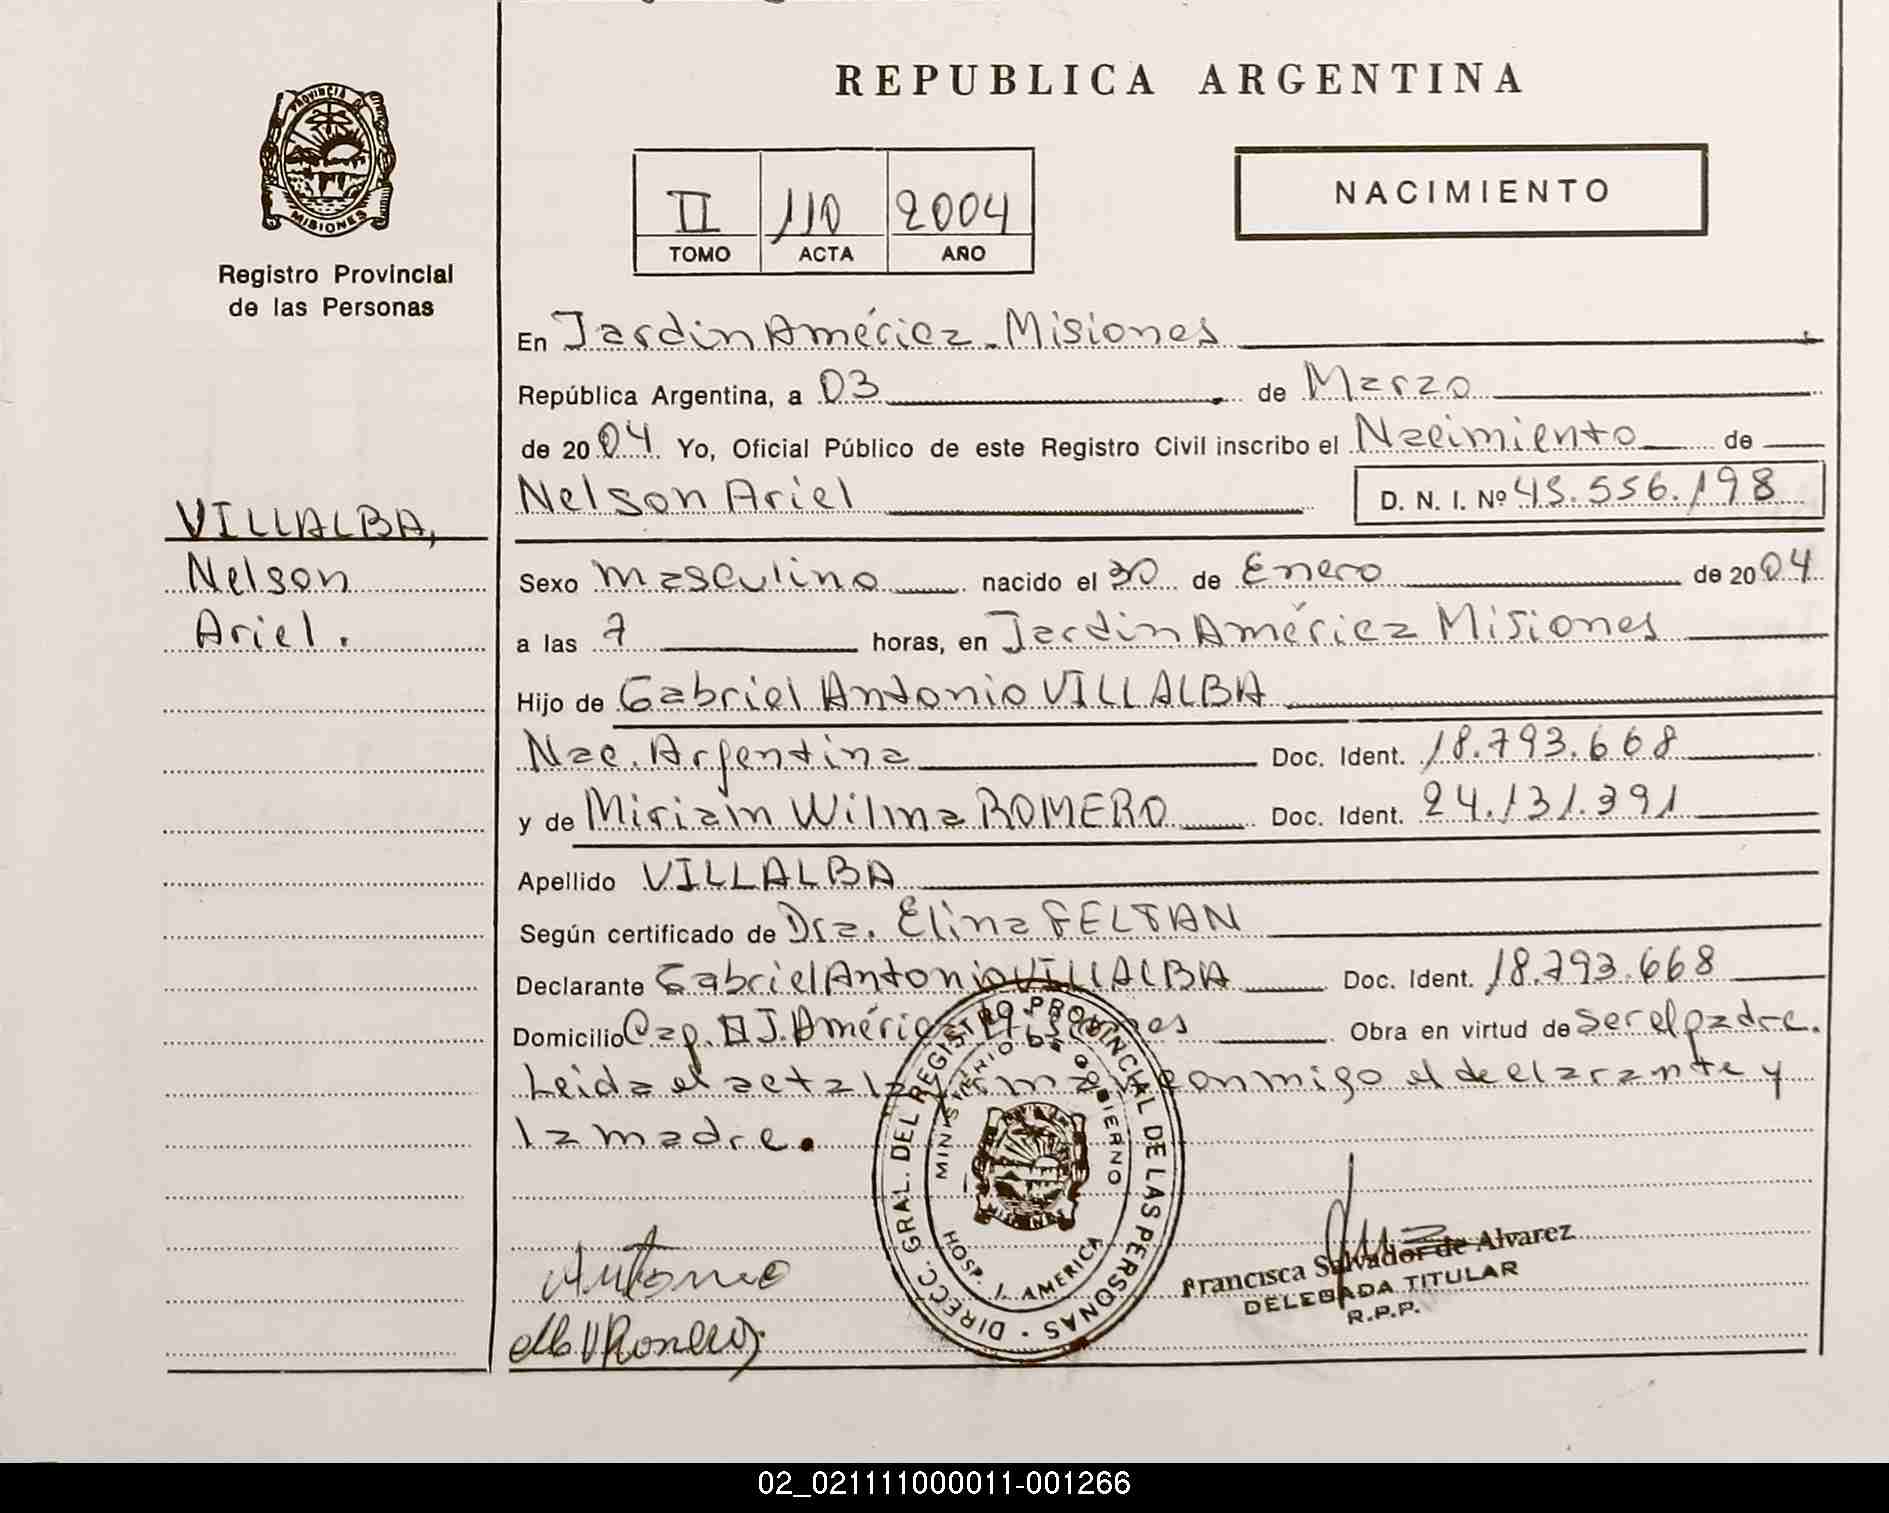 REPUBLICA ARGENTINA
PROVINCIA DE
MISIONES
Registro Provincial
de las Personas
II 110 2004
TOMO ACTA AÑO
NACIMIENTO
VILLALBA,
Nelson
Ariel.
En Jardin América. Misiones
República Argentina, a 03 de Marzo
de 2004 Yo, Oficial Público de este Registro Civil inscribo el Nacimiento de
Nelson Ariel D. N. I. Nº 45.556.198
Sexo masculino nacido el 30 de Enero de 2004
a las 7 horas, en Jardin América Misiones
Hijo de Gabriel Antonio VILLALBA
Nac. Argentina Doc. Ident. 18.793.668
y de Miriam Wilma ROMERO Doc. Ident. 24.131.391
Apellido VILLALBA
Según certificado de Dra. Elina FELTAN
Declarante Gabriel Antonio VILLALBA Doc. Ident. 18.793.668
Domicilio J. América Misiones Obra en virtud de ser el padre.
Leida el acta la firman conmigo el declarante y
la madre.
DIRECC. GRAL. DEL REGISTRO PROVINCIAL DE LAS PERSONAS
MINISTERIO DE GOBIERNO
HOSP. J. AMERICA
MISIONES
Antonio
Romero
Francisca Salvador de Alvarez
DELEGADA TITULAR
R.P.P.
02_021111000011-001266